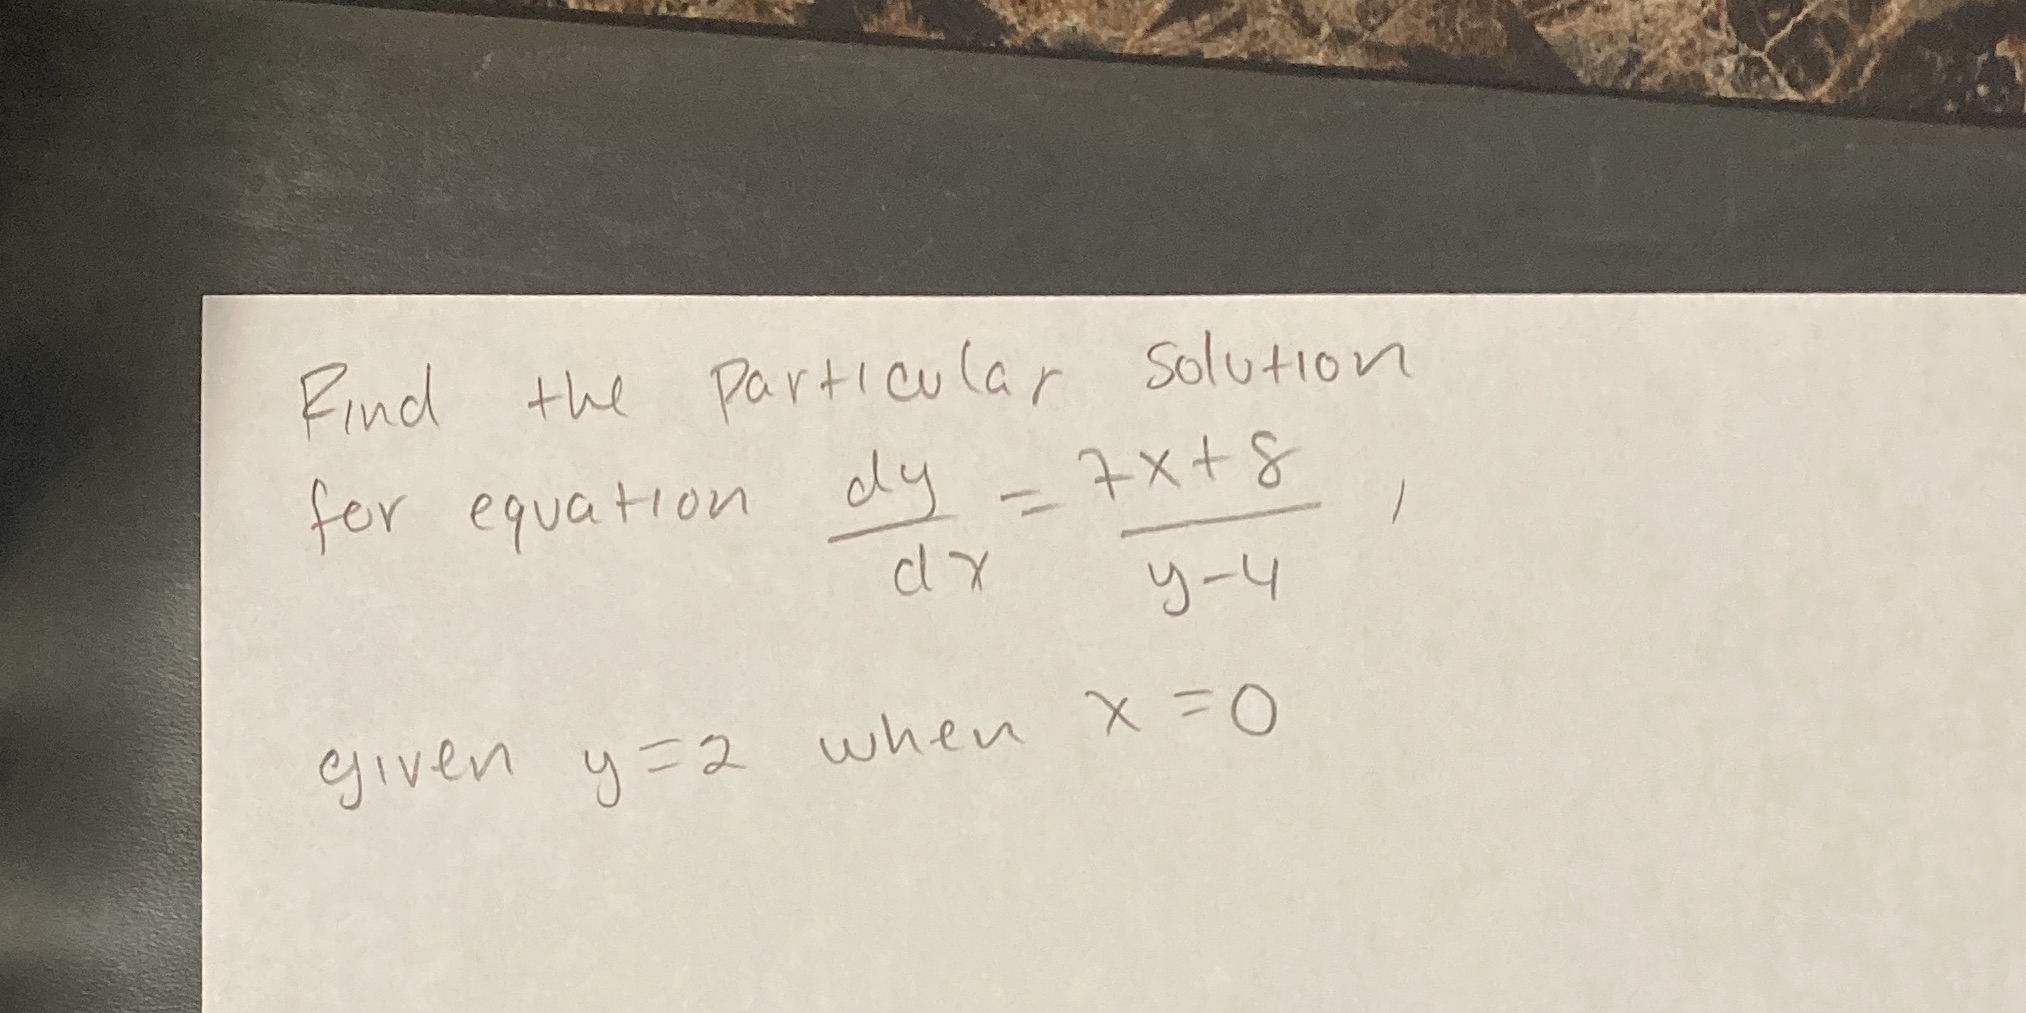 Find the Particular Solution
for equation dy/dx = 7x+8/y-4,
given y=2 when x=0